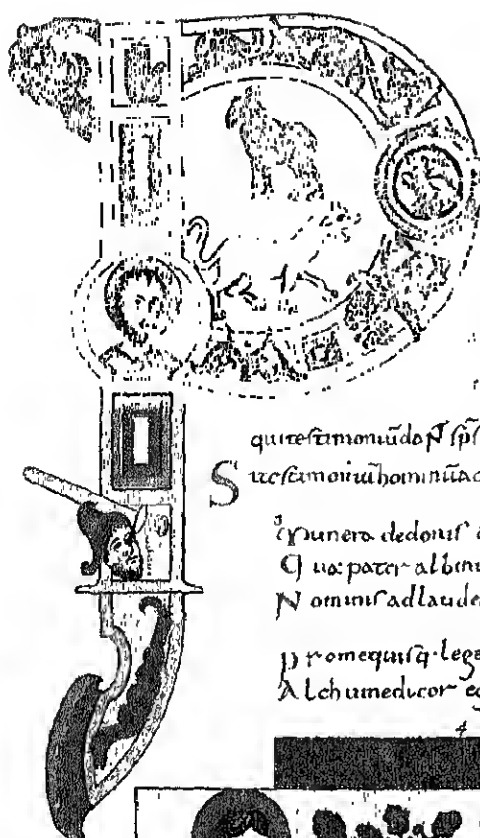 qui testimoniū da
S i testimoniū hominū a
Munera de donis
Q ua: pater albinu
N ominis ad laude
p ro me quisq· lege
A lchuine dicor eg
4